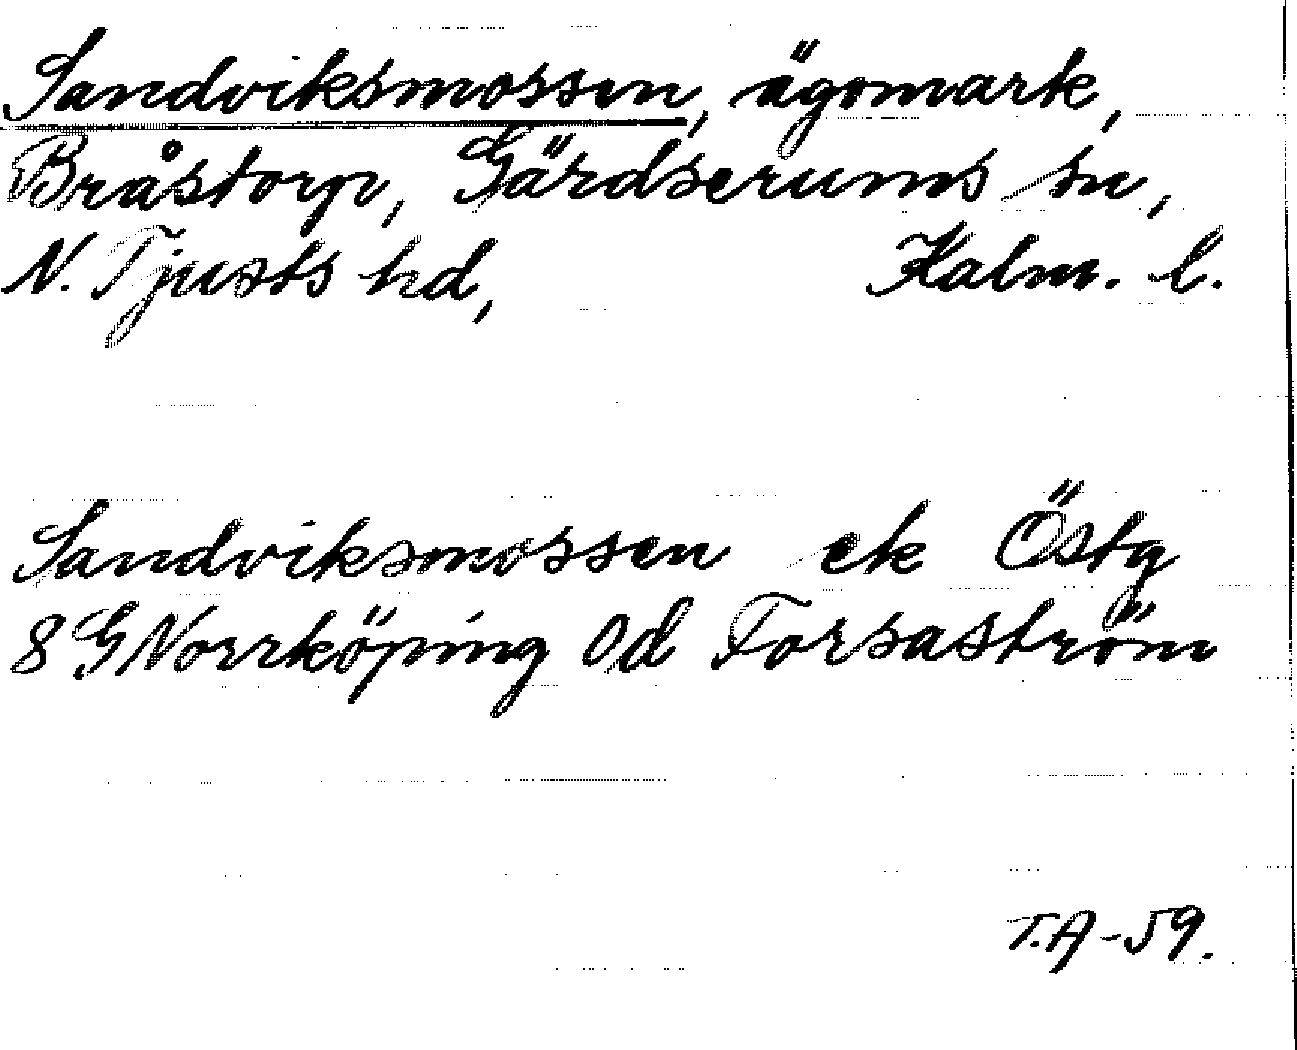 Sandviksmossen, ägomark,
Bråstorp, Gärdserums sn,
N. Tjusts hd, Kalm. l.
Sandviksmossen ek Östg
8G Norrköping Od Forsaström
T.A-59.